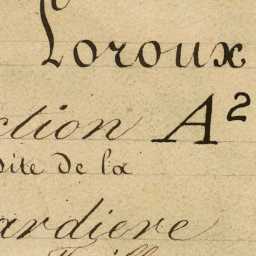 Loroux
ction A²
dite de la
ardiere